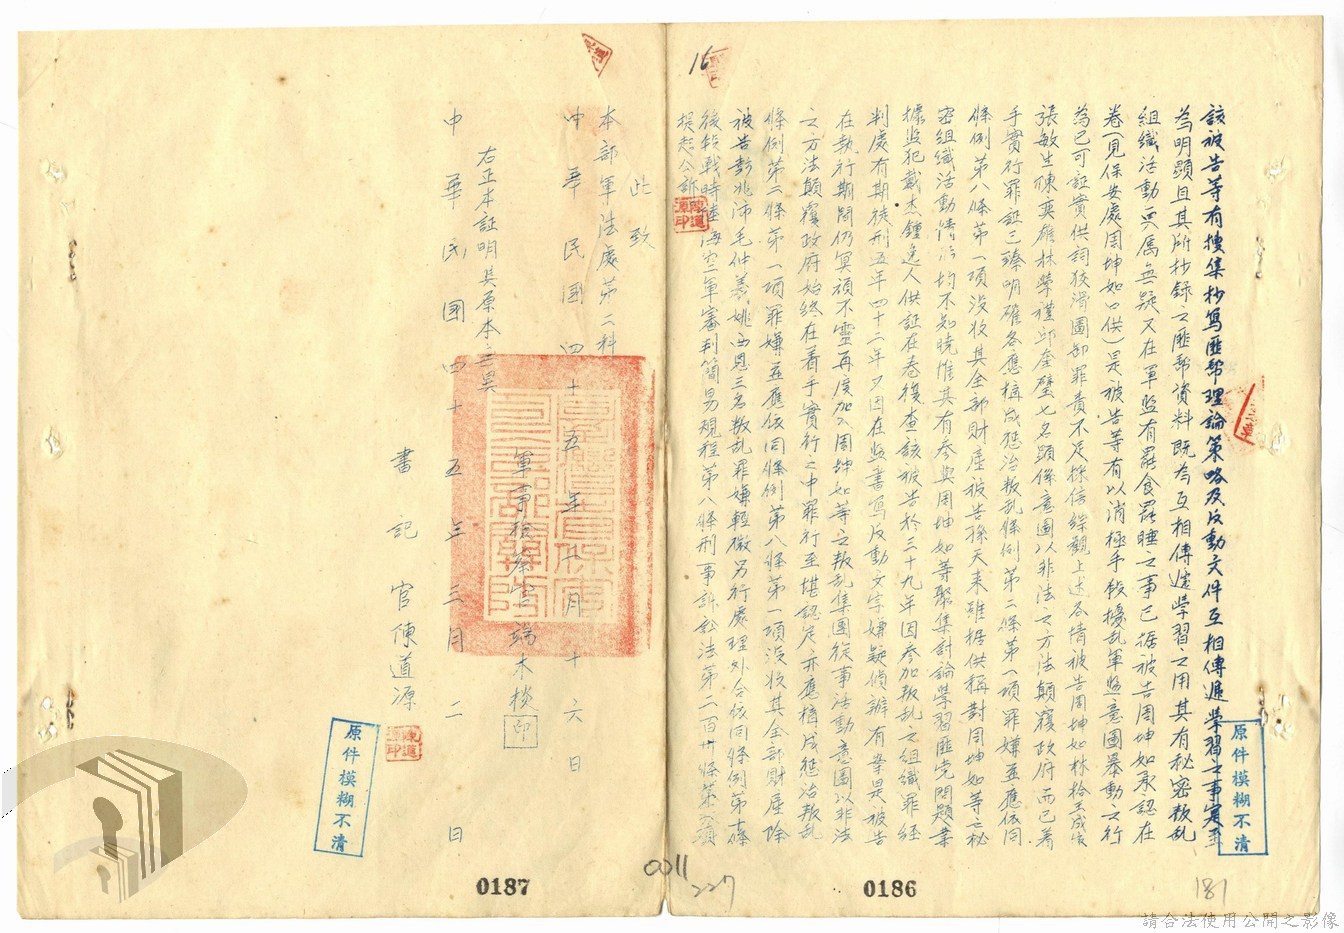 該被告等有搜集抄寫匪幫理論策略及反動文件互相傳遞學習之事實至
為明顯且其所抄錄之匪幫資料既為互相傳遞學習之用其有秘密叛亂
組織活動一節屬無疑又在軍監有罷食罷睡之事已据被告周坤如承認在
卷(見保安處周坤如口供)是被告等有以消極手段擾亂軍監意圖暴動之行
為已可証實供詞狡滑圖卸罪責不足採信綜觀上述各情被告周坤如林拾
張敏生陳英雄林學禮邱奎璧七名顯係意圖以非法之方法顛覆政府而已著
手實行罪証已臻明確各應構成懲治叛乱條例第二條第一項罪嫌並應依同
條例第八條第一項沒收其全部財產被告孫天來雖据供稱對周坤如等之秘
密組織活動情形均不知曉惟其有參與周坤如等聚集討論學習匪党問題業
據監犯戴杰鍾逸人供証在卷復查該被告於三十九年因參加叛乱之組織罪經
判處有期徒刑五年四十二年又因在監書寫反動文字嫌疑偵辦有案是被告
在執行期間仍冥頑不靈再度加入周坤如等之叛乱集團從事活動意圖以非法
之方法顛覆政府始終在着手實行之中罪行至堪認定亦應構成懲治叛乱
條例第二條第一項罪嫌並應依同條例第八條第一項沒收其全部財產除
被告彭兆沛毛仲義姚西恩三名叛乱罪嫌輕微另行處理外合依同條例第十條
後段戰時陸海空軍審判簡易規程第八條刑事訴訟法第二百卅條第一項
提起公訴
陳道源印
此致
本部軍法處第二科
中華民國四十五年二月十六日
軍事檢察官端木棪 印
右正本証明與原本無異
中華民國四十五年三月二日
書記官陳道源
陳道源印
原件模糊不清
原件模糊不清
16
0011
227
181
0187
0186
請合法使用公開之影像